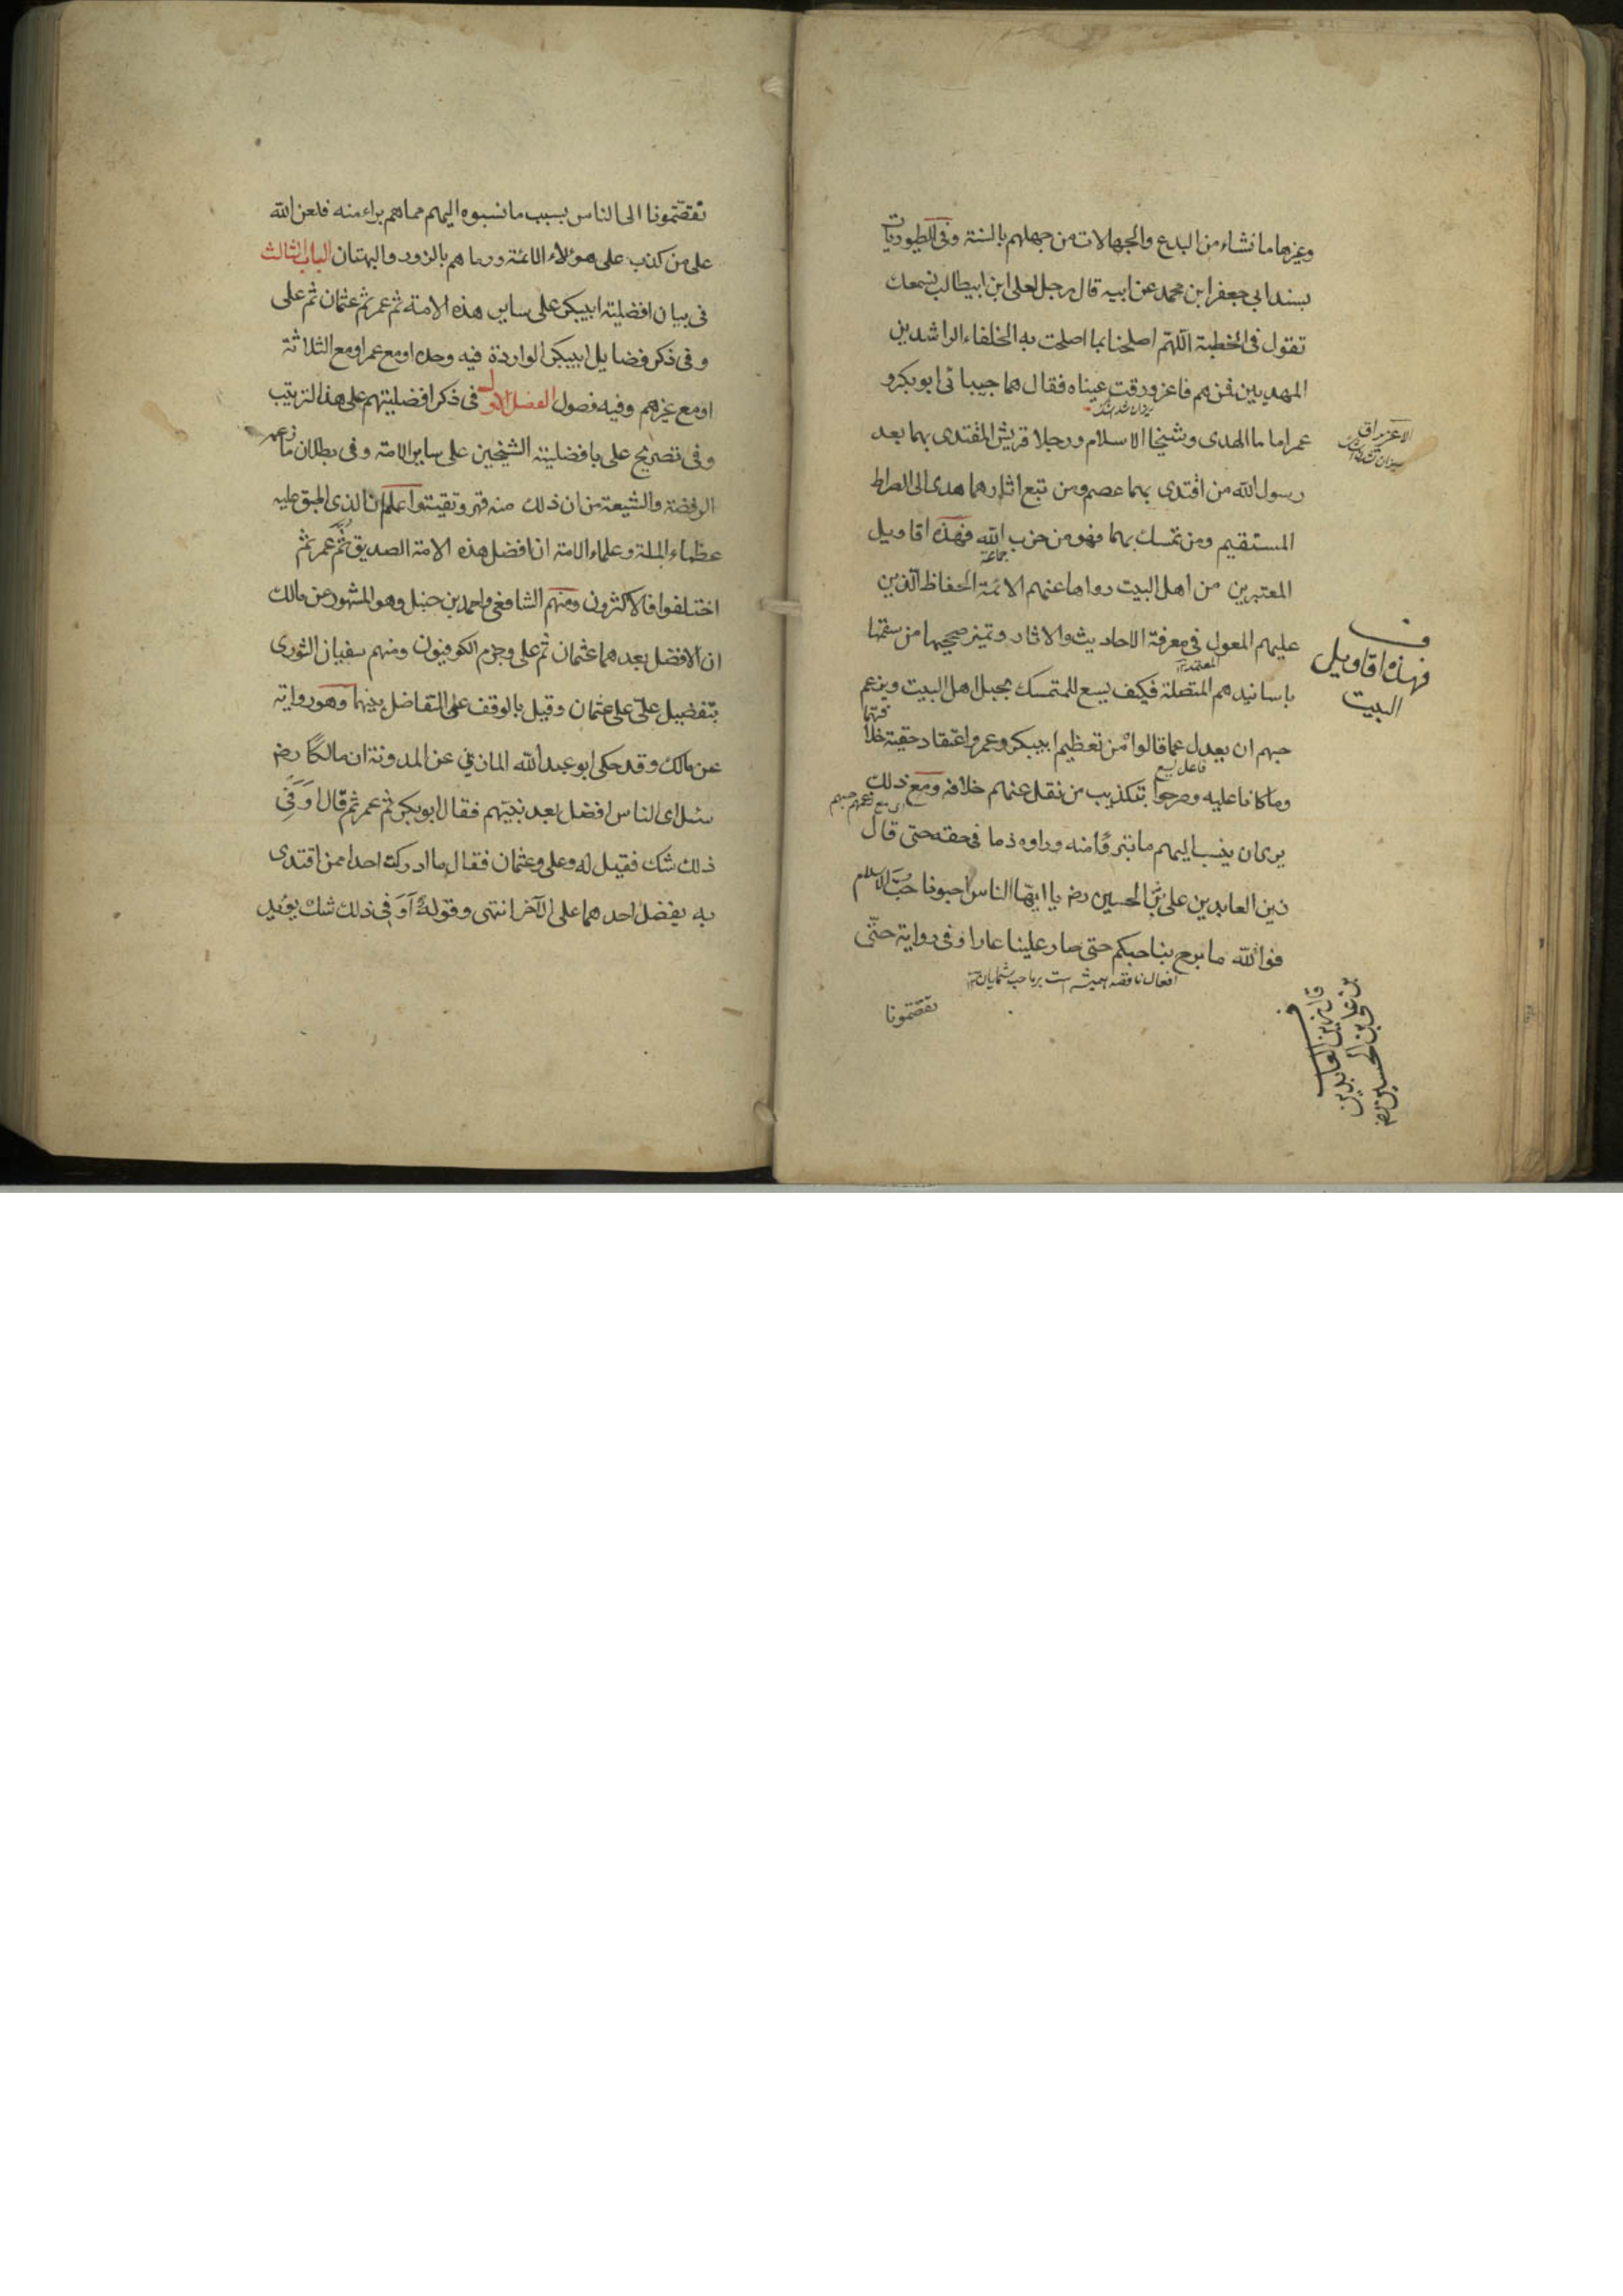 وغيرها ما نشاء من البدع والجهالات من جهلهم بالسنة وفى الطيوريات
بسند ابي جعفر ابن محمد عن ابيه قال رجل لعلى ابن ابيطالب نسمعك
تقول فى الخطبة اللهم اصلحنا بما اصلحت به الخلفاء الراشدين
المهديين فمن هم فاغرورقت عيناه فقال هما حبيبائى ابو بكر و
عمر اماما الهدى وشيخا الاسلام ورجلا قريش المقتدى بهما بعد
رسول الله من اقتدى بهما عصم ومن تبع اثارهما هدى الى الصراط
المستقيم ومن تمسك بهما فهو من حزب الله فهذه اقاويل
جماعة
المعتبرين من اهل البيت رواها عنهم الائمة الحفاظ الذين
عليهم المعول فى معرفة الاحاديث والاثار وتميز صحيحها من سقمها
باسانيدهم المتصلة فكيف يسع للمتمسك بحبل اهل البيت ويزعم
حبهم ان يعدل عما قالوا من تعظيم ابيبكر وعمر واعتقاد حقية خلا
فتهما
فاعل يسع
وما كانا عليه وصرحوا بتكذيب من نقل عنهم خلافه ومع ذلك
يرى ان ينسب اليهم ما تبرؤا منه ورأوه ذما فى حقه حتى قال
زين العابدين على بن الحسين رض يا ايها الناس احبونا حب الاسلام
فوالله ما برح بنا حبكم حتى صار علينا عارا وفى رواية حتى
افعال ناقصه
نقصتمونا
فهذه اقاويل
البيت
قال زين العابدين
بن على بن الحسين رض
نقصتمونا الى الناس بسبب ما نسبوه اليهم مما هم براء منه فلعن الله
على من كذب على هؤلاء الائمة ورماهم بالزور والبهتان الباب الثالث
فى بيان افضلية ابيبكر على ساير هذه الامة ثم عمر ثم عثمان ثم على
و فى ذكر فضايل ابيبكر الواردة فيه وحده او مع عمر او مع الثلاثة
او مع غيرهم وفيه فصول الفصل الاول فى ذكر افضليتهم على هذا الترتيب
وفى تصريح على بافضلية الشيخين على ساير الامة وفى بطلان ما زعمه
الرفضة والشيعة من ان ذلك منه قهر وتقية اعلم ان الذى اطبق عليه
عظماء الملة وعلماء الامة ان افضل هذه الامة الصديق ثم عمر ثم
اختلفوا فالاكثرون ومنهم الشافعى واحمد بن حنبل وهو المشهور عن مالك
ان الافضل بعدهما عثمان ثم على وجزم الكوفيون ومنهم سفيان الثورى
بتفضيل على على عثمان وقيل بالوقف على التفاضل بينهما وهو رواية
عن مالك وقد حكى ابو عبد الله المازني عن المدونة ان مالكا رض
سئل اى الناس افضل بعد نبيهم فقال ابو بكر ثم عمر ثم قال اَوَ فِي
ذلك شك فقيل له وعلى وعثمان فقال ما ادركت احدا ممن اقتدى
به يفضل احدهما على الآخر انتهى وقوله اَوَ فِي ذلك شك يؤيد